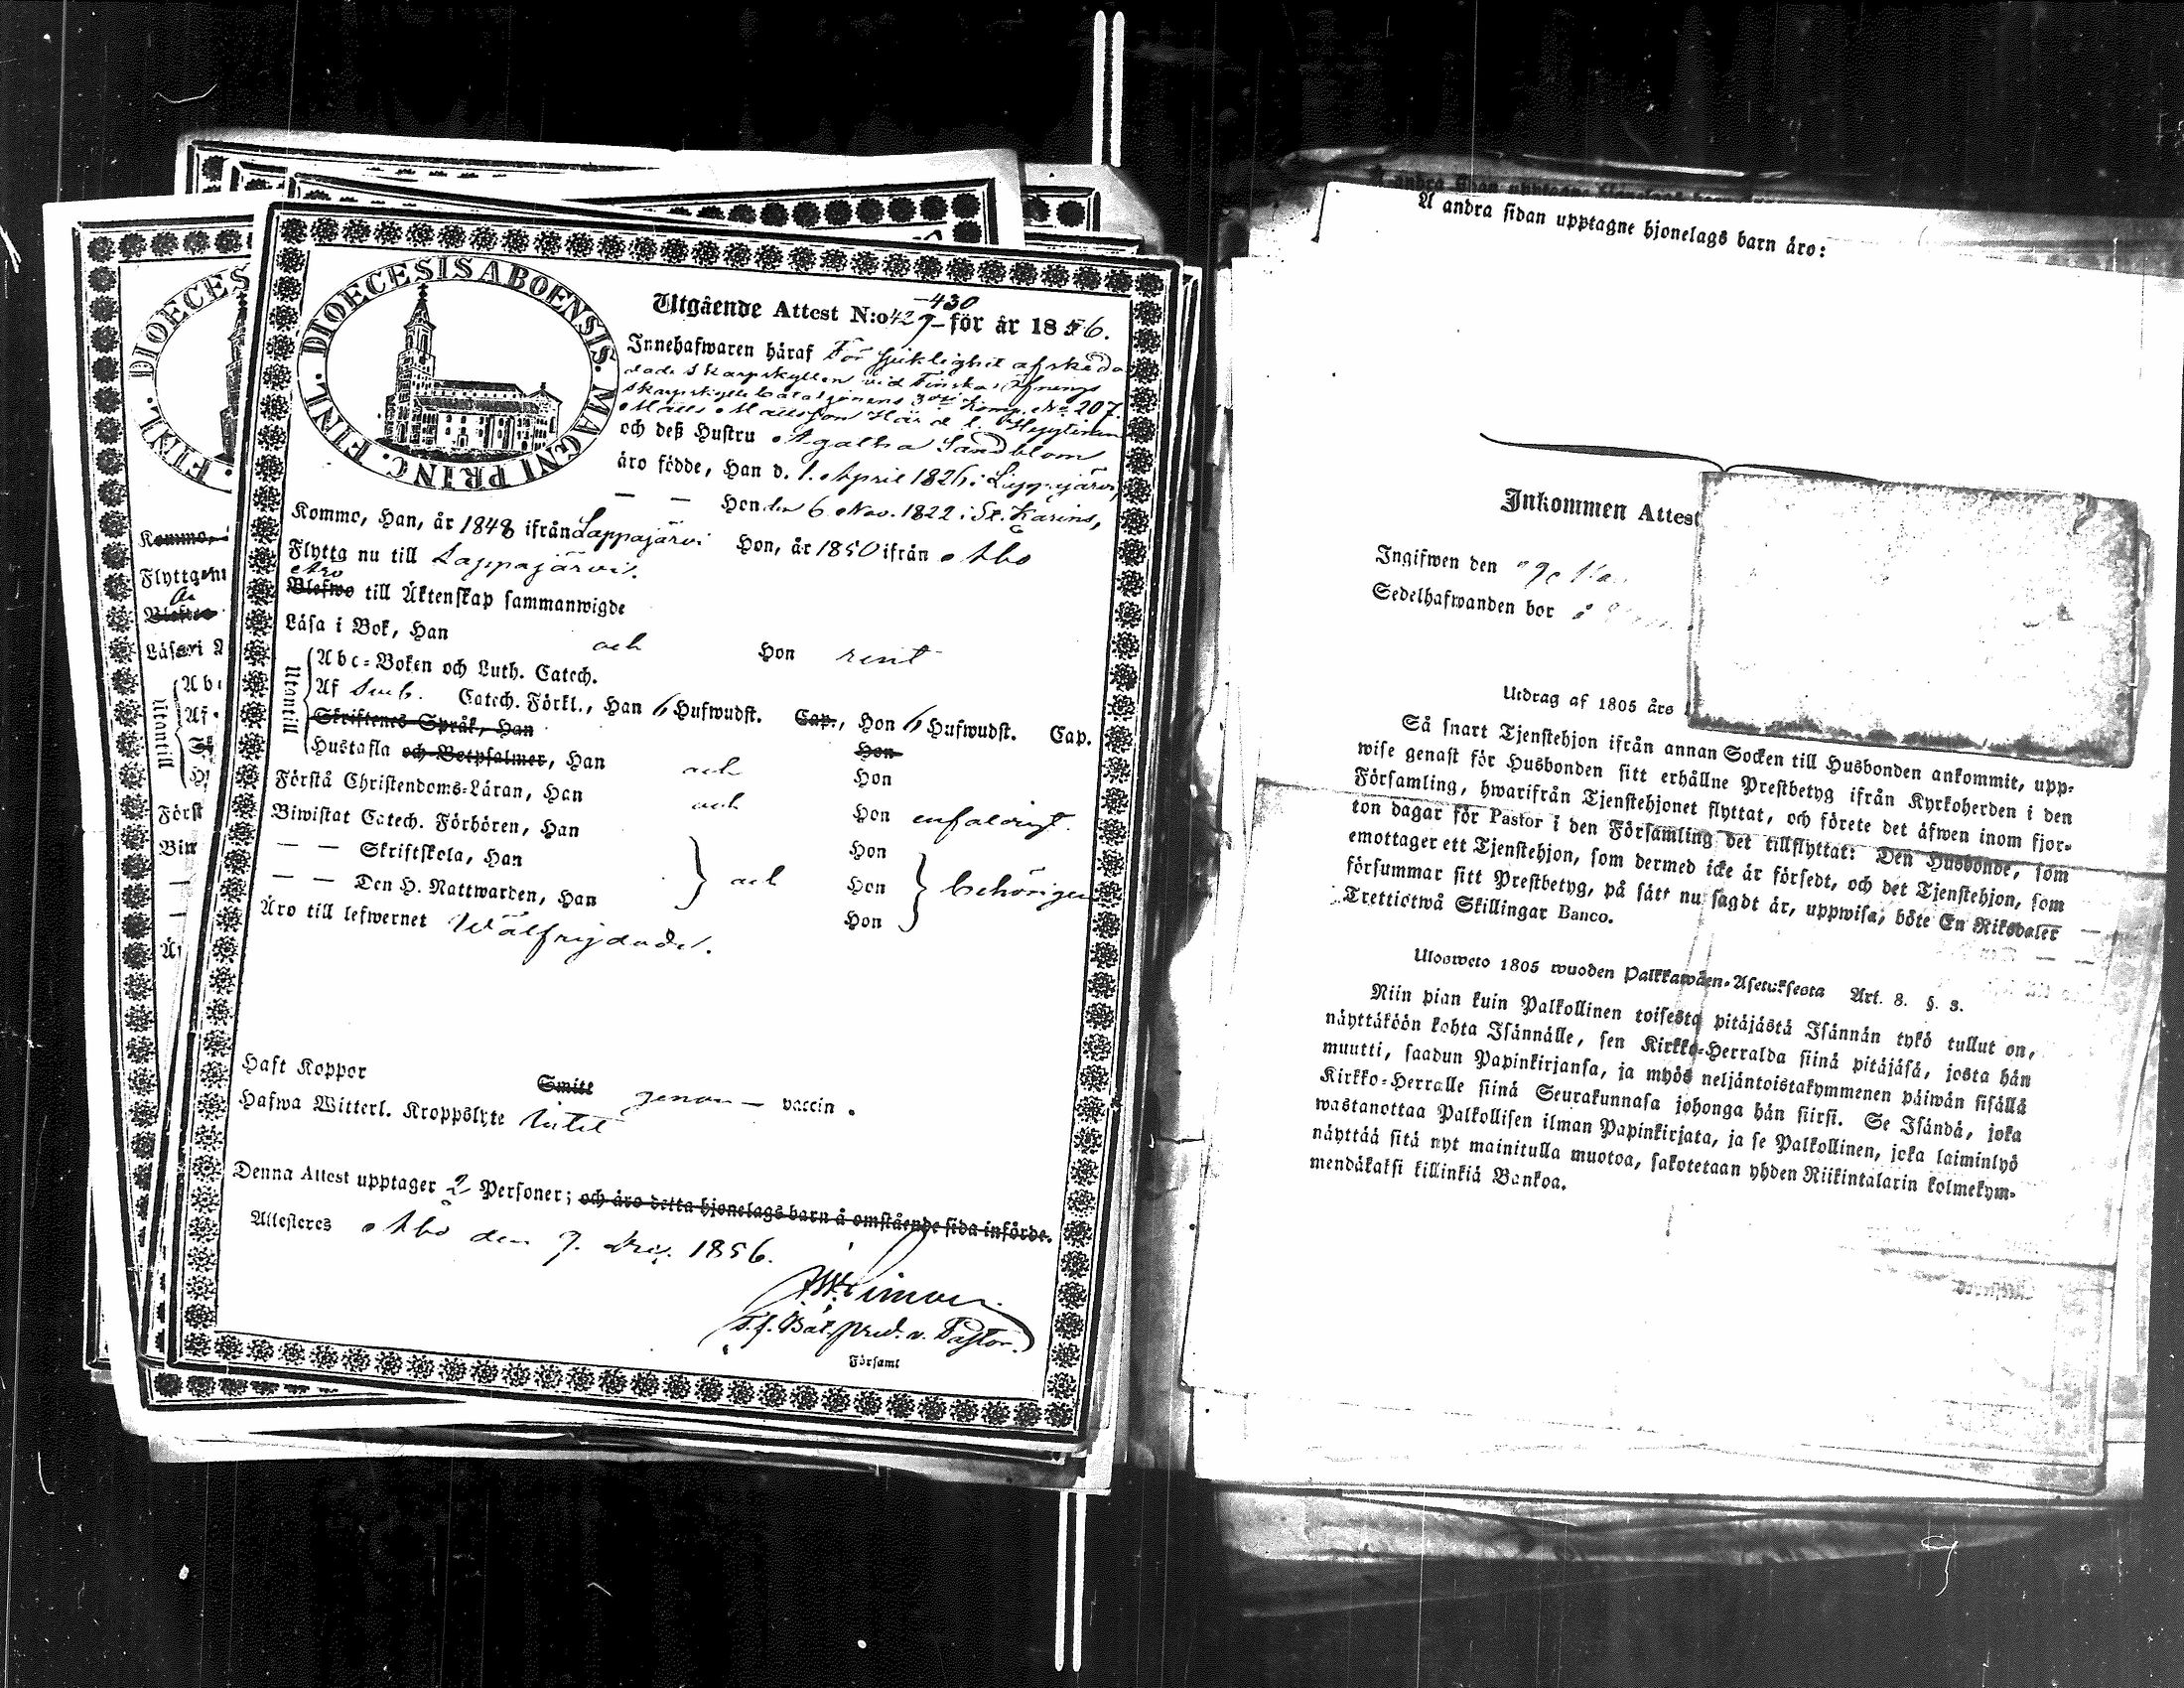 DIOECESIS ABOENSIS. MAGNI PRINC. FINL.
Utgående Attest N:o 429–430 för år 1856.
Innehafwaren häraf För sjuklighet afskeda
dade Skarpskytten vid Finska
Skarpskytte bataljonens 3die Komp. No 207.
Matts Mattsson Hård
och deß Hustru Agatha Sandblom
äro födde, Han d. 1. April 1826 i Lappajärvi,
— — Hon den 6 Nov. 1822 i St. Karins,
Komme, Han, år 1848 ifrån Lappajärvi Hon, år 1850 ifrån Åbo
Flytta nu till Lappajärvi.
Äro
Blefwo till Äktenskap sammanwigde
Läsa i Bok, Han och Hon rent
Utantill
Abc-Boken och Luth. Catech.
Af Sveb. Catech. Förkl., Han 6 Hufwudst. Cap., Hon 6 Hufwudst. Cap.
Skriftenes Språk, Han Hon
Hustafla och Botpsalmer, Han och Hon
Förstå Christendoms-Läran, Han och Hon enfaldigt.
Biwistat Catech. Förhören, Han Hon
— — Skriftskola, Han och Hon behörigen
— — Den H. Nattwarden, Han Hon
Äro till lefwernet Wälfrejdade.
Haft Koppor Smitt genom — vaccin.
Hafwa Witterl. Kroppslyte intet
Denna Attest upptager 2 Personer; och äro detta hjonelags barn å omstående sida införde.
Attesteres Åbo den 1856.
t.f. Bat. pred. v. Pastor.
Församl
DIOECES
FINL.
Kommo,
Flyttgent
Abc
Af
Först
Å andra sidan upptagne hjonelags barn äro:
Inkommen Attest
Ingifwen den
Sedelhafwanden bor
Utdrag af 1805 års
Så snart Tjenstehjon ifrån annan Socken till Husbonden ankommit, upp-
wise genast för Husbonden sitt erhållne Prestbetyg ifrån Kyrkoherden i den
Församling, hwarifrån Tjenstehjonet flyttat, och förete det äfwen inom fjor-
ton dagar för Pastor i den Församling det tillflyttat: Den Husbonde, som
emottager ett Tjenstehjon, som dermed icke är försedt, och det Tjenstehjon, som
försummar sitt Prestbetyg, på sätt nu sagdt är, uppwisa, böte En Riksdaler
Trettiotwå Skillingar Banco.
Ulosweto 1805 wuoden Palkkawäen-Asetuksesta Art. 8. §. 3.
Niin pian kuin Palkollinen toisesta pitäjästä Isännän tykö tullut on,
näyttäköön kohta Isännälle, sen Kirkko-Herralda siinä pitäjäsä, josta hän
muutti, saadun Papinkirjansa, ja myös neljäntoistakymmenen päiwän sisällä
Kirkko-Herralle siinä Seurakunnasa johonga hän siirsi. Se Isändä, joka
wastanottaa Palkollisen ilman Papinkirjata, ja se Palkollinen, joka laiminlyö
näyttää sitä nyt mainitulla muotoa, sakotetaan yhden Riikintalarin kolmekym-
mendäkaksi killinkiä Bankoa.